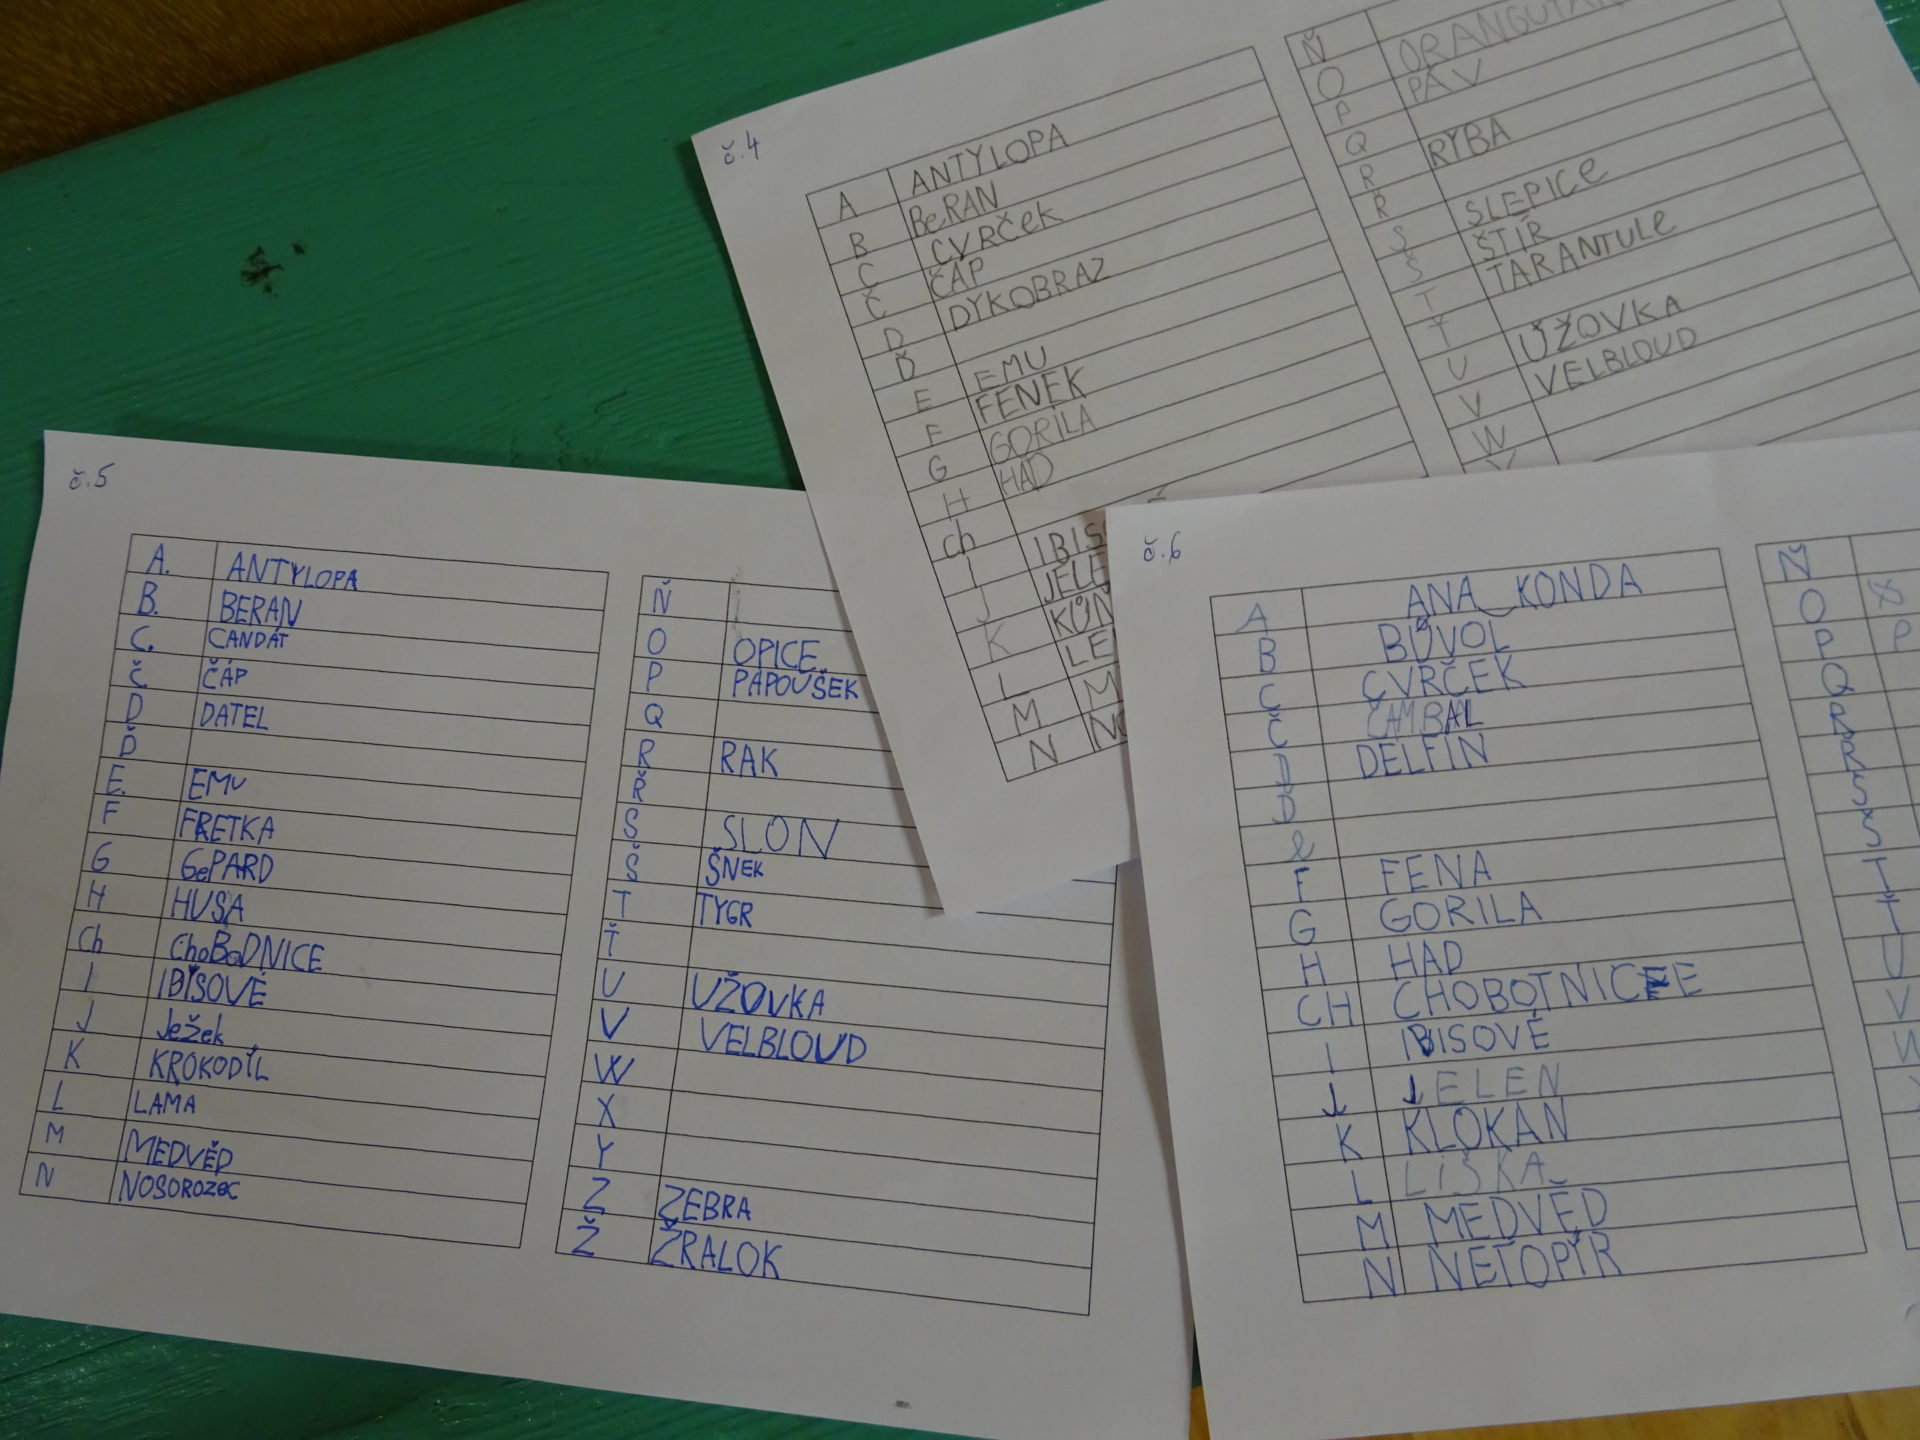 č.4
A ANTYLOPA
B BeRAN
C CVRČek
Č ČÁP
D DYKOBRAZ
Ď
E EMU
F FENEK
G GORILA
H HAD
ch
I
J
K KŮŇ
L
M
N
Ň
O ORANGUTAN
P PÁV
Q
R RYBA
Ř
S SLEPICe
Š ŠTÍR
T TARANTULe
Ť
U UŽOVKA
V VELBLOUD
W
č.5
A. ANTYLOPA
B. BERAN
C. CANDÁT
Č ČÁP
D DATEL
Ď
E. EMU
F FRETKA
G GePARD
H HUSA
Ch ChoBoDNICE
I IBISOVÉ
J Ježek
K KROKODÝL
L LAMA
M MEDVĚD
N NOSOROZEC
Ň
O OPICE
P PAPOUŠEK
Q
R RAK
Ř
S SLON
Š ŠNEK
T TYGR
Ť
U UŽOVKA
V VELBLOUD
W
X
Y
Z ZEBRA
Ž ŽRALOK
č.6
A ANA KONDA
B BŮVOL
C CVRČEK
Č ČAMBAL
D DELFÍN
Ď
e
F FENA
G GORILA
H HAD
CH
I IBISOVÉ
J JELEN
K KLOKAN
L LIŠKA
M MEDVĚD
N NETOPÝR
Ň
O
P P
Q
R
Ř
S
Š
T
Ť
U
V
W